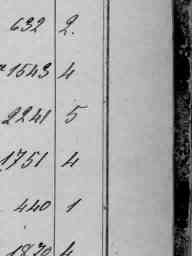 632 2.
1543 4
2241 5
1751 4
440 1
1870 4